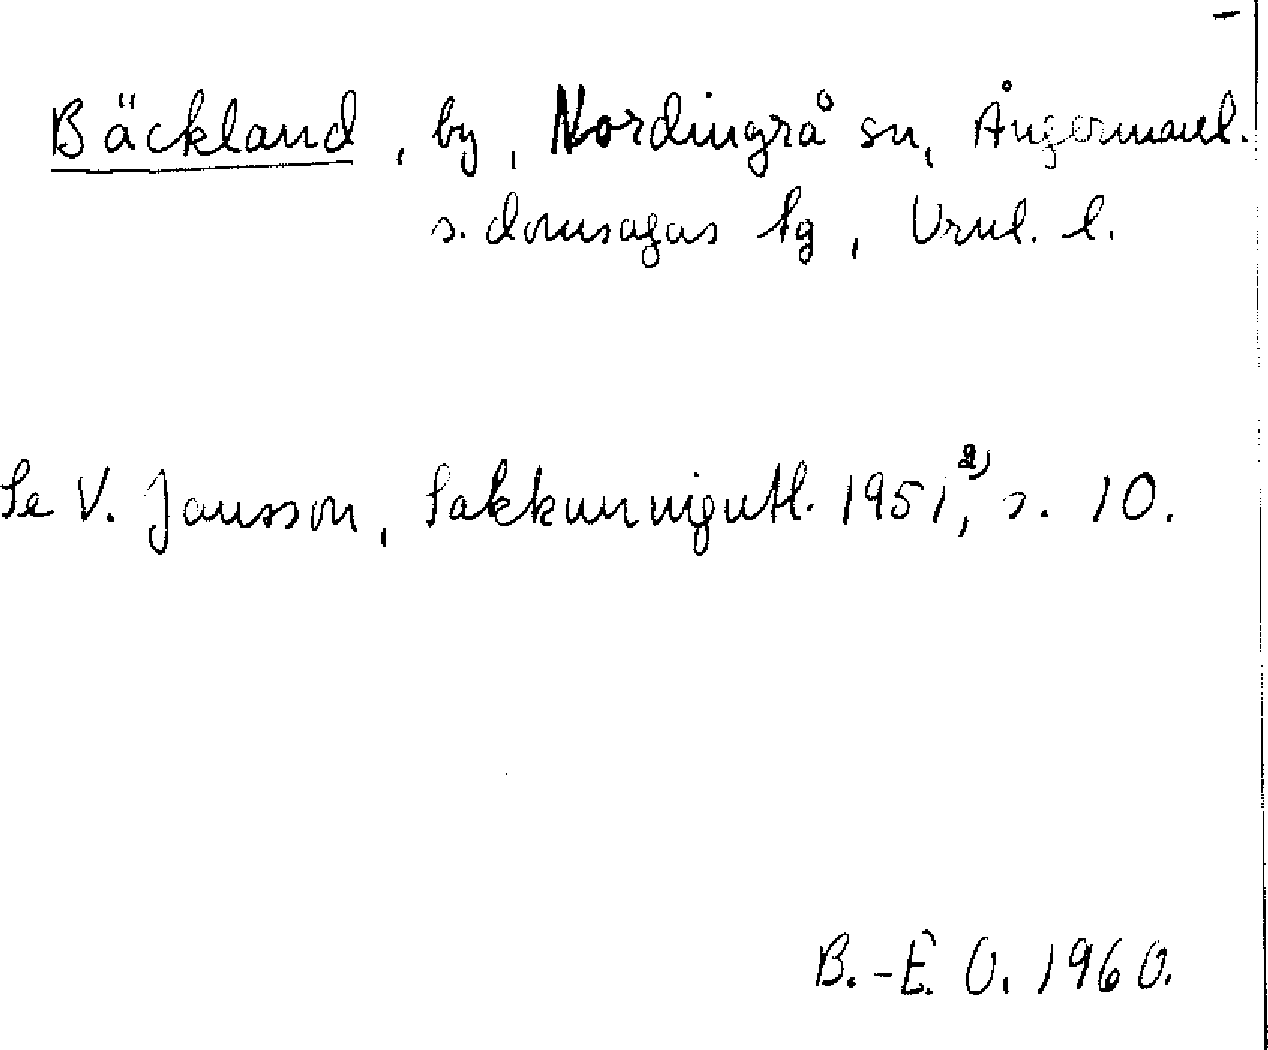 Bäckland, by, Nordingrå sn, Ångermanl.
s. domsagas tg, Vrnl. l.
Se V. Jansson, Sakkunnigutl. 1951,²⁾ s. 10.
B.-E. O. 1960.